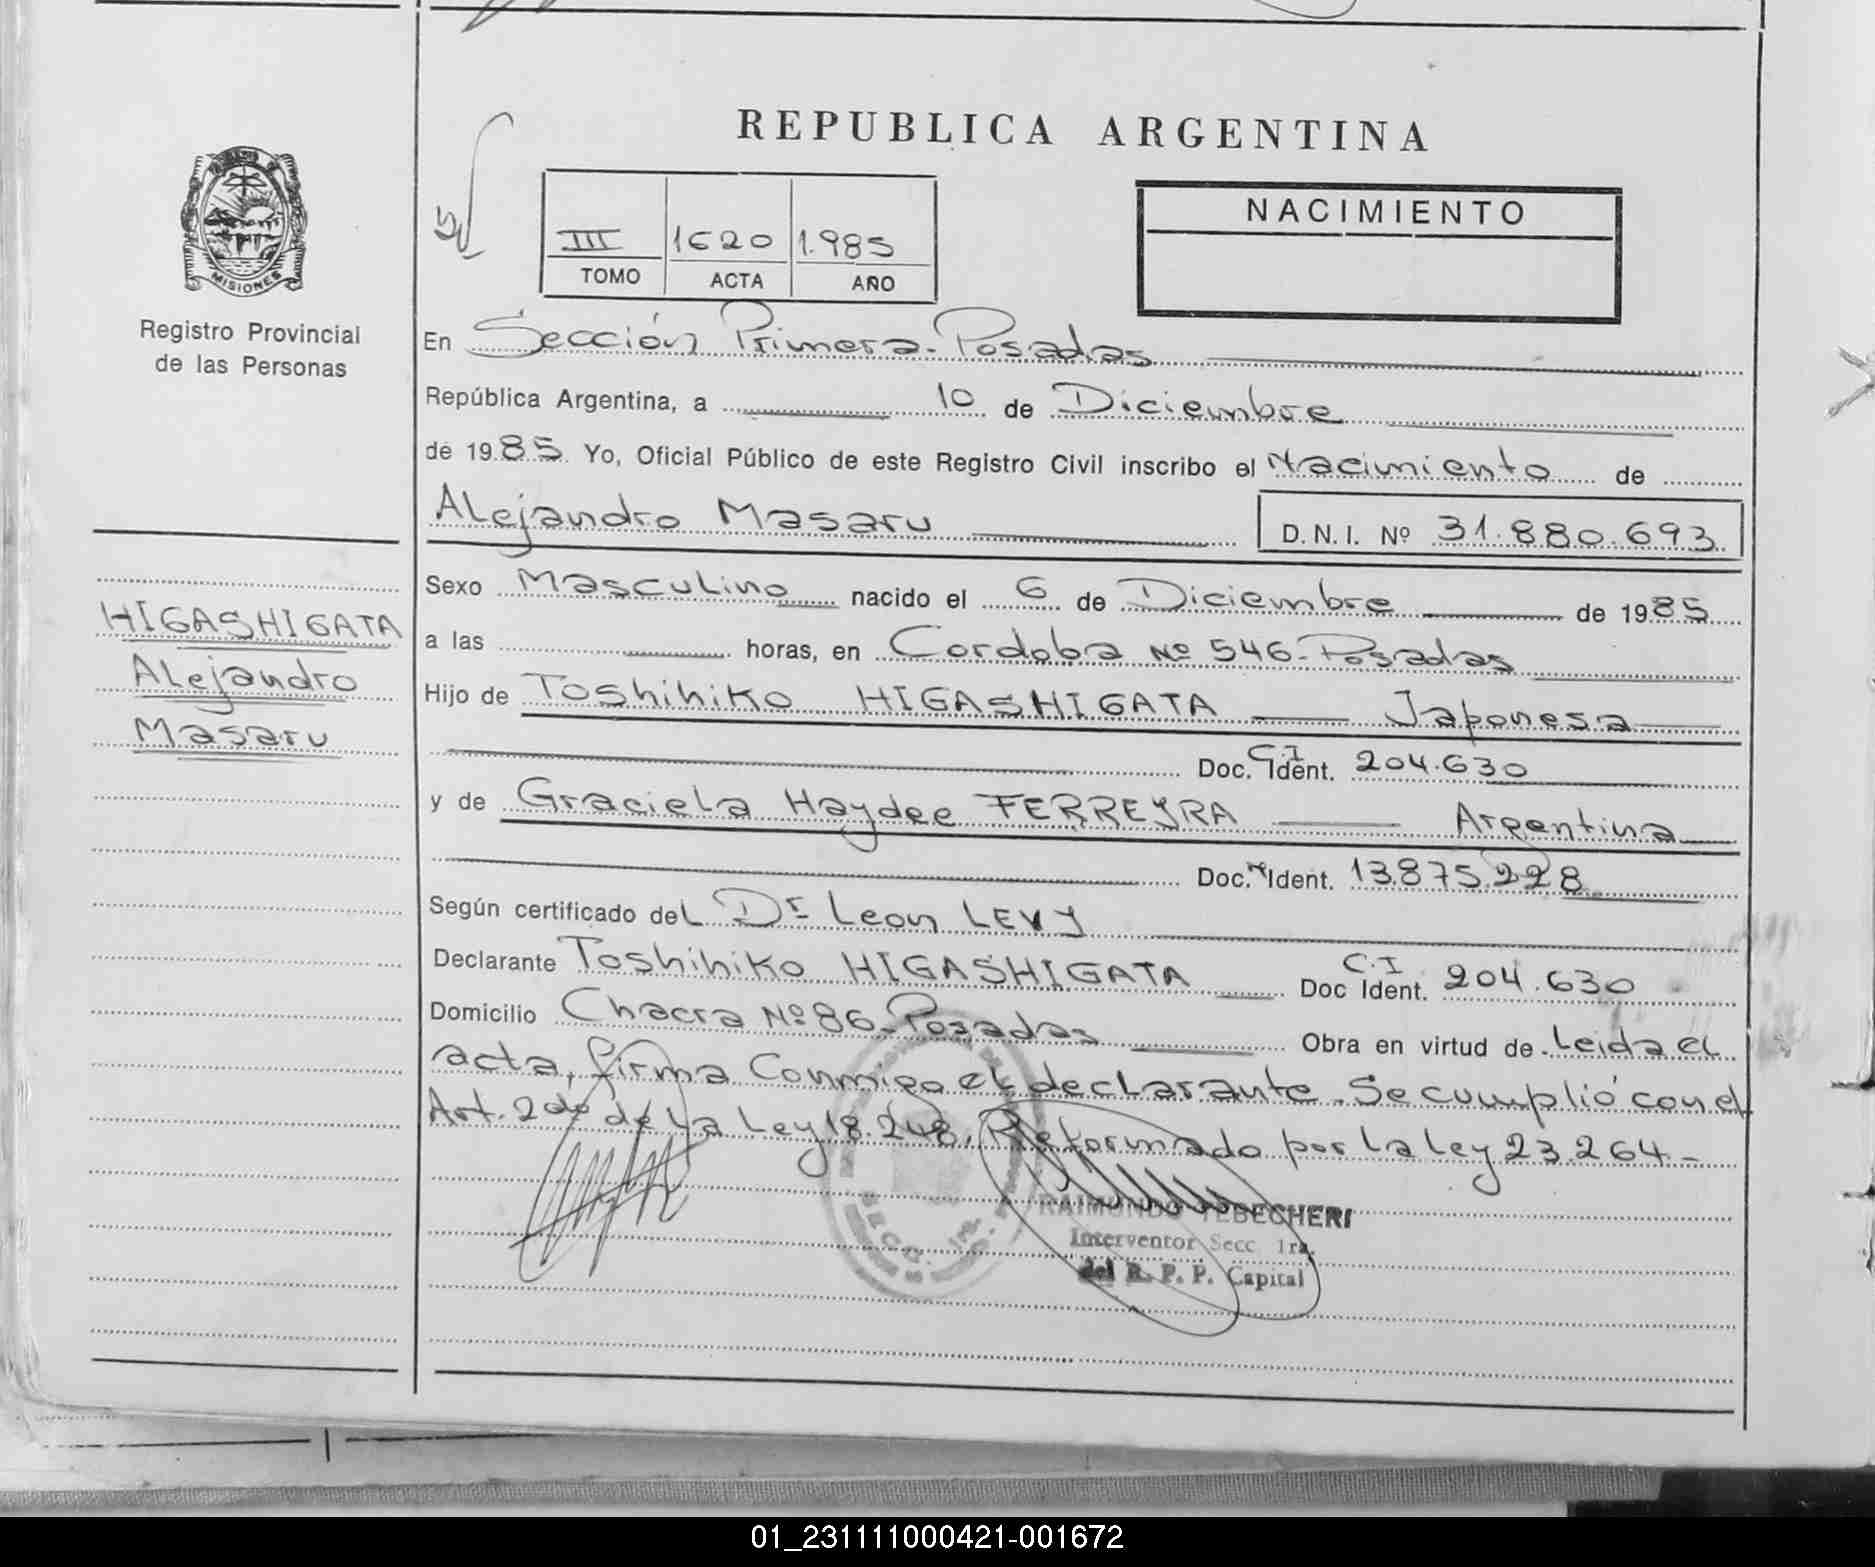 REPUBLICA ARGENTINA
MISIONES
Registro Provincial
de las Personas
III 1620 1.985
TOMO ACTA AÑO
NACIMIENTO
En Sección Primera-Posadas
República Argentina, a 10 de Diciembre
de 1985 Yo, Oficial Público de este Registro Civil inscribo el Nacimiento de
Alejandro Masaru D.N.I. Nº 31.880.693
Sexo Masculino nacido el 6 de Diciembre de 1985
a las horas, en Cordoba Nº 546-Posadas
Hijo de Toshihiko HIGASHIGATA Japonesa
Doc. Ident. C.I 204.630
y de Graciela Haydee FERREYRA Argentina
Doc. Ident. 13.875.228
Según certificado del Dr Leon LEVY
Declarante Toshihiko HIGASHIGATA Doc Ident. C.I 204.630
Domicilio Chacra Nº 86-Posadas Obra en virtud de Leida el
acta, firma Conmigo el declarante. Se cumplió con el
Art. 2do de La Ley 18.248. Reformado por la Ley 23.264-
RAIMUNDO TEBECHERI
Interventor Secc 1ra.
del R. P. P. Capital
HIGASHIGATA
Alejandro
Masaru
01_231111000421-001672